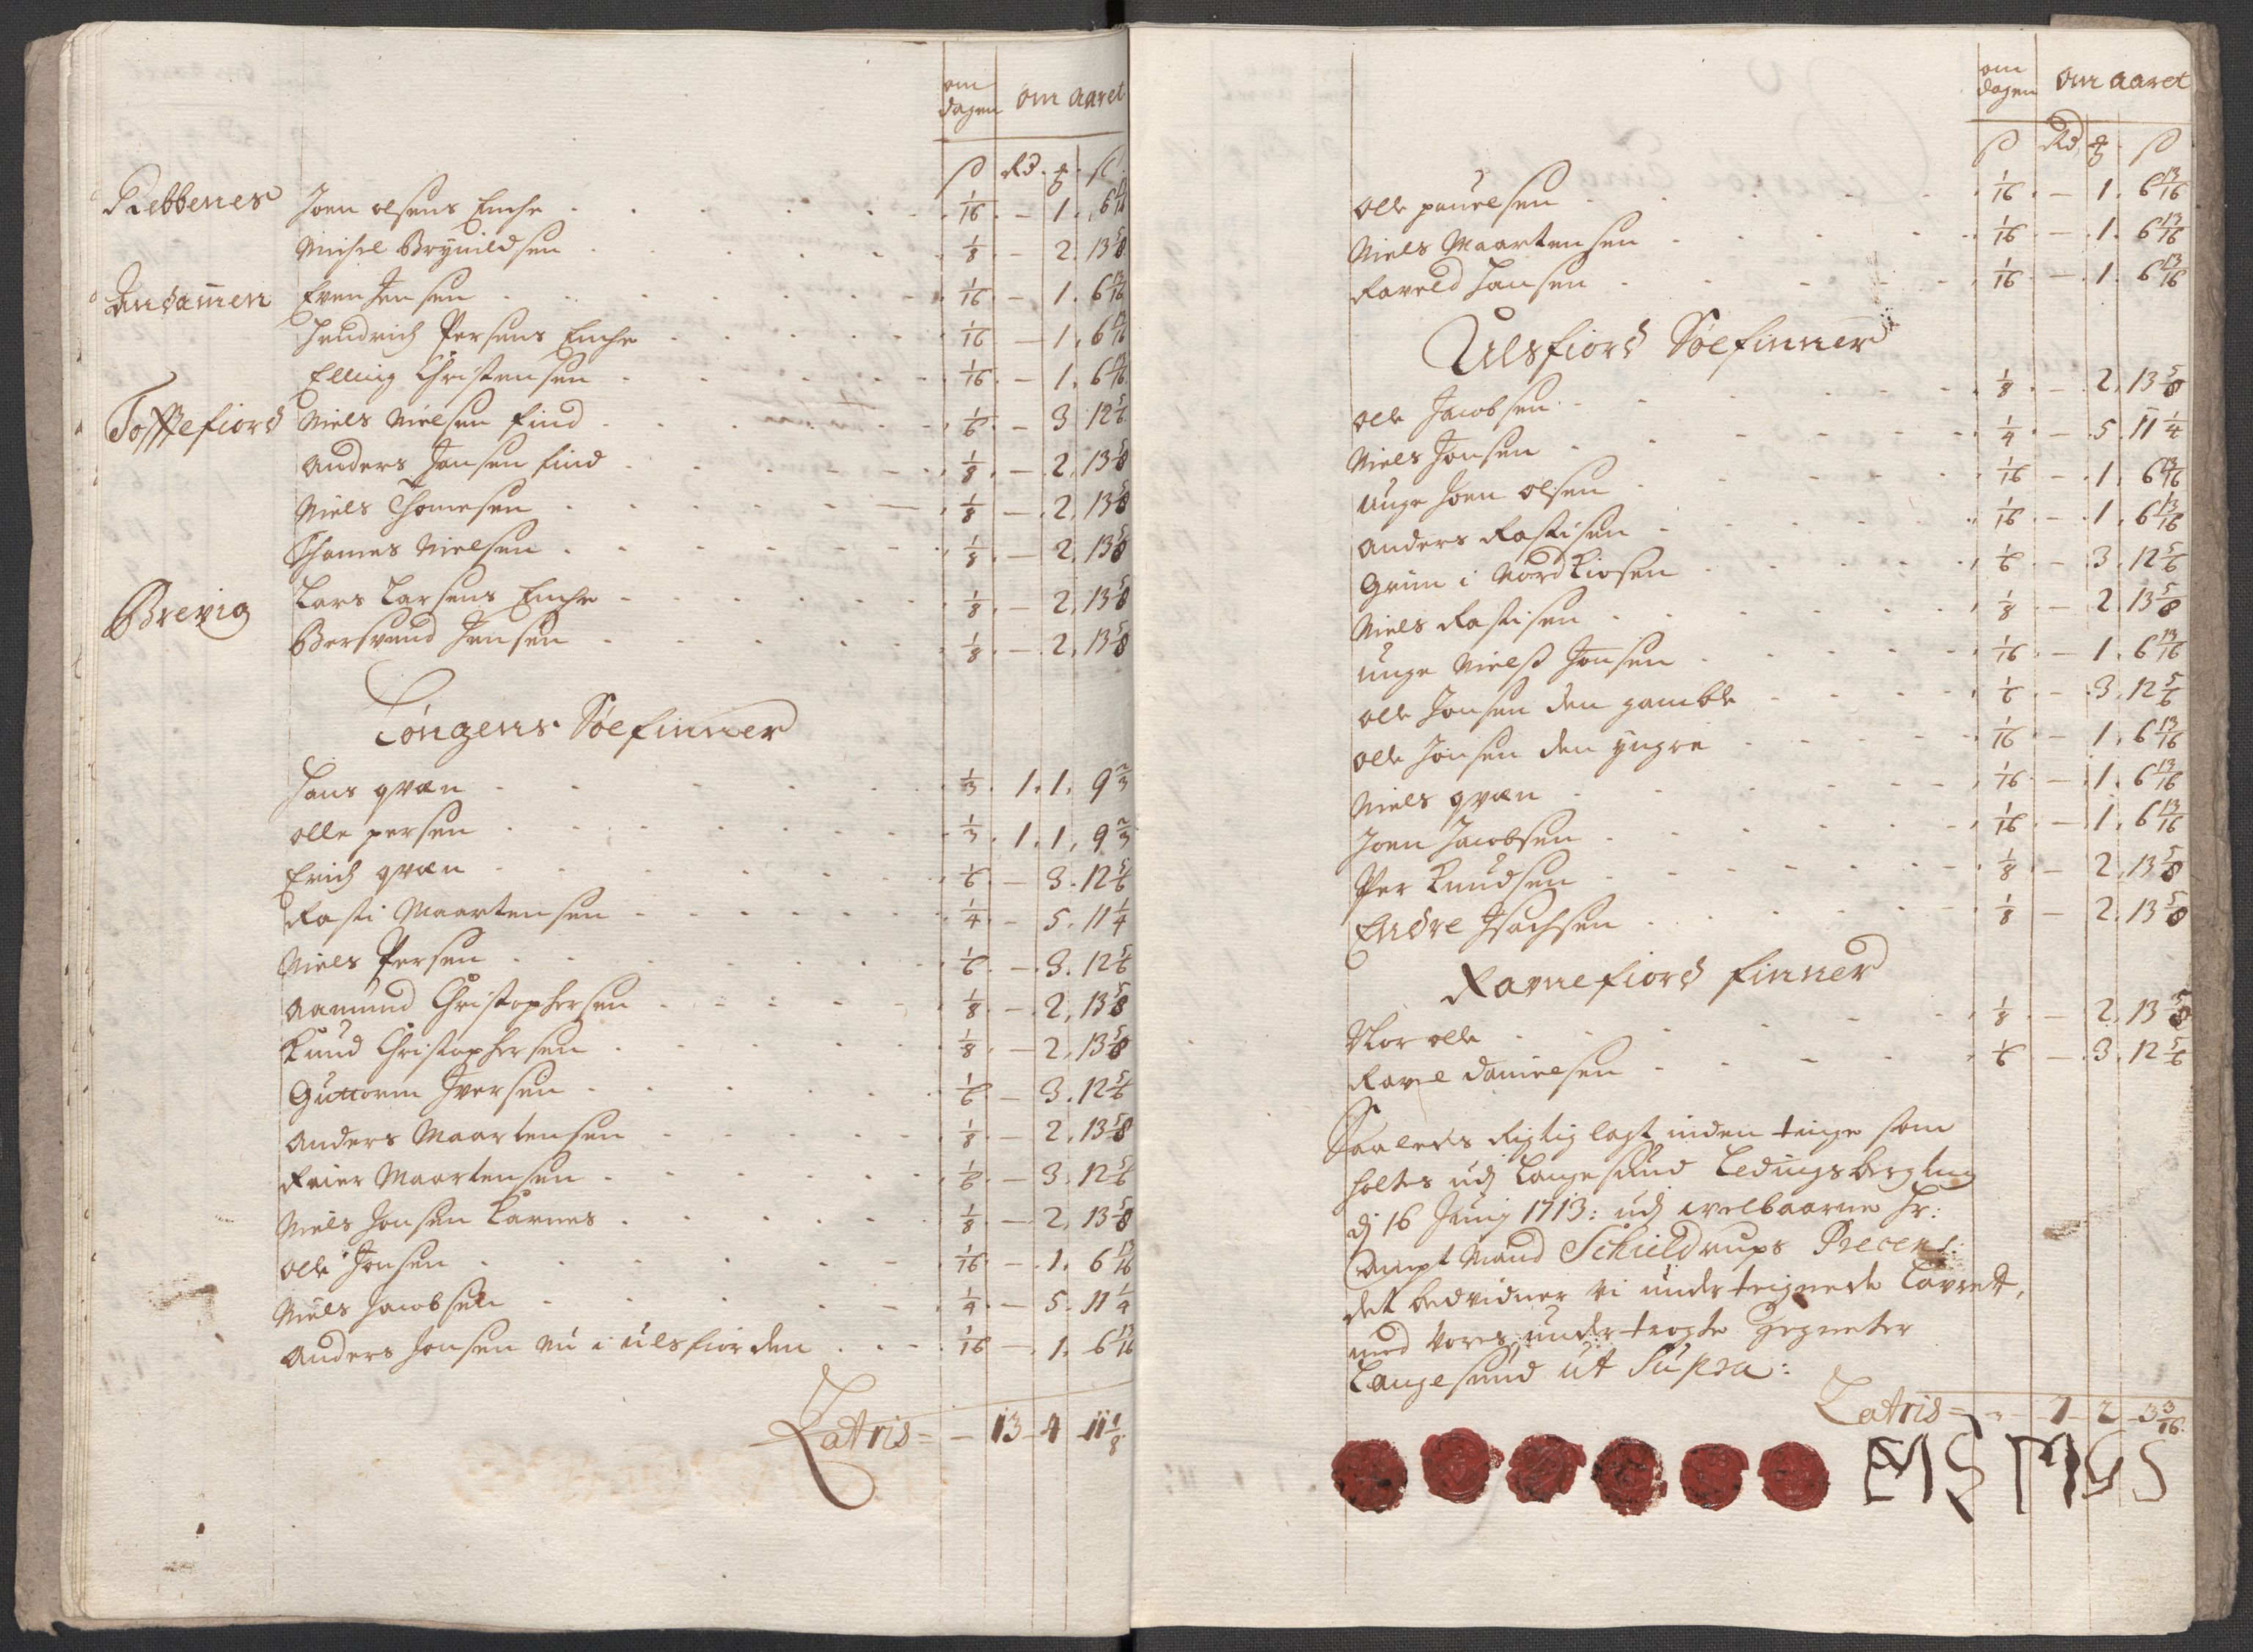 om dagen om aaret
ß Rd. ₰ ß
Rebbenes Joen olsens Enche 1/16 - 1. 6 13/16
Michel Brynildsen 1/8 - 2. 13 5/8
Andamen Even Jensen 1/16 - 1. 6 13/16
Hendrich Persens Enche 1/16 - 1. 6 13/16
Elling Christensen 1/16 - 1. 6 13/16
Toffefiord Niels Nielsen find 1/6 - 3 12 5/6
Anders Jonsen find 1/8 - 2. 13 5/8
Niels Thomesen 1/8 - 2. 13 5/8
Thomes Nielsen 1/8 - 2. 13 5/8
Brevig Lars Larsens Enche 1/8 - 2. 13 5/8
Bersvend Jensen 1/8 - 2. 13 5/8
Søefinner
Hans qvæn 1/3 1. 1. 9 2/3
olle persen 1/3 1. 1. 9 2/3
Erich qvæn 1/6 - 3. 12 5/6
Rasti Maartensen 1/4 - 5. 11 1/4
Niels Persen 1/6 - 3. 12 5/6
Aamund Christophersen 1/8 - 2. 13 5/8
Knud Christophersen 1/8 - 2. 13 5/8
Guttorm Iversen 1/6 - 3. 12 5/6
Anders Maartensen 1/8 - 2. 13 5/8
Reier Maartensen 1/6 - 3. 12 5/6
Niels Jonsen Karnes 1/8 - 2. 13 5/8
olle Jonsen 1/16 - 1. 6 13/16
Niels Jacobsen 1/4 - 5. 11 1/4
Anders Jonsen nu i ulsfiorden 1/16 - 1. 6 13/16
Latris - 13 - 4 11 1/8
om dagen om aaret
ß Rd. ₰ ß
olle pouelsen 1/16 - 1. 6 13/16
Niels Maartensen 1/16 - 1. 6 13/16
Raveld Hansen 1/16 - 1. 6 13/16
Ulsfiord Søefinner
olle Jacobsen 1/8 - 2. 13 5/8
Niels Jonsen 1/4 - 5. 11 1/4
unge Joen olsen 1/16 - 1. 6 13/16
Anders Rastisen 1/16 - 1. 6 13/16
Grim i Nordkiosen 1/6 - 3. 12 5/6
Niels Rastisen 1/8 - 2. 13 5/8
unge Nielß Jonsen 1/16 - 1. 6 13/16
olle Jonsen den gamble 1/6 - 3. 12 5/6
olle Jonsen den yngre 1/16 - 1. 6 13/16
Niels qvæn 1/16 - 1. 6 13/16
Joen Jacobsen 1/16 - 1. 6 13/16
Per Knudsen 1/8 - 2. 13 5/8
Endre Isachsen 1/8 - 2. 13 5/8
Ravnefiord finner
Stor olle 1/8 - 2. 13 5/8
Ravel danielsen 1/6 - 3. 12 5/6
Saaledes Rigtig lagt inden tinge som
holtes udj Langesund Ledingsberg ting
dj 16 Junij 1713: udj welbaarne Hr:
Ampt Mand Schieldrups
det bedvidner vi underteignede Lavret,
med vores undertrøgte Zegneter
Langesund ut Supra:
Latris - 7 - 2 - 3 3/16
EMS MGS